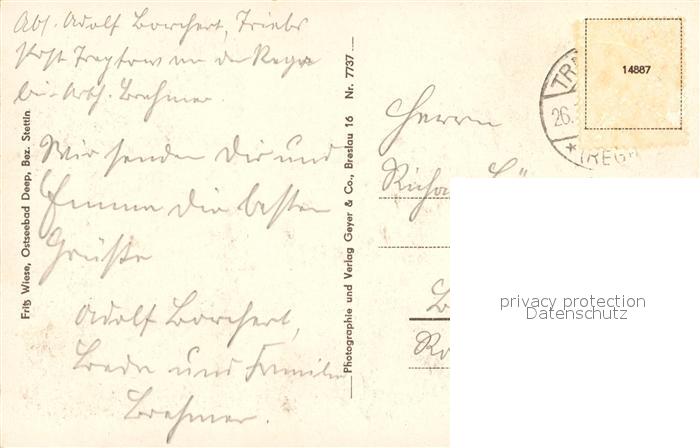 Abs. Adolf Borchert, Triebs
Post Treptow an der Rega
bei Arb. Brehmer.
Wir senden Dir und
Emma die besten
Grüße
Adolf Borchert,
und Familie
Brehmer.
Fritz Wiese, Ostseebad Deep, Bez. Stettin
Photographie und Verlag Geyer & Co., Breslau 16 Nr. 7737
Herrn
TR
26.
* (REGA
14887
privacy protection
Datenschutz